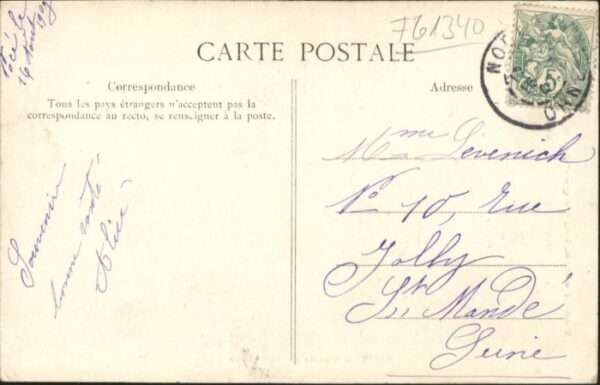 Nocé le
16 Août 1907
761340
CARTE POSTALE
Correspondance
Tous les pays étrangers n'acceptent pas la
correspondance au recto, se renseigner à la poste.
Souvenir
bonne santé
Alice
Adresse
NO
ORNE
5
Mme Levenich
No 10, Rue
Jolly
St Mandé
Seine